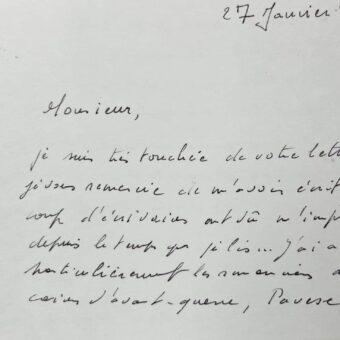 27 Janvier
Monsieur,
je suis très touchée de votre lett
je vous remercie de m'avoir écrit
coup d'écrivains ont dû m'imp
depuis le temps que je lis... J'ai a
particulièrement les romanciers a
cains d'avant-guerre, Pavese